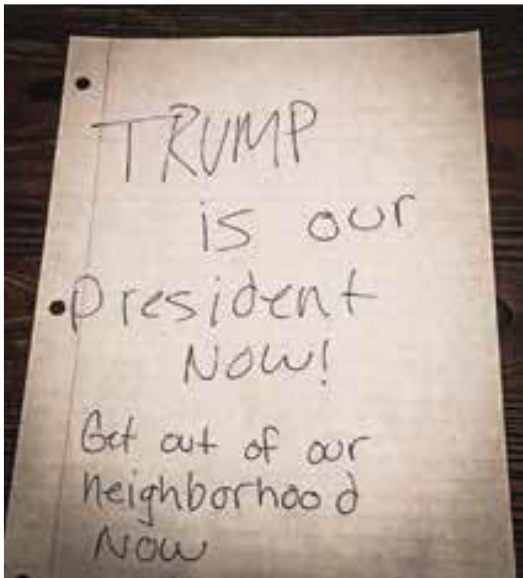 TRUMP
is our
President
Now!
Get out of our
neighborhood
Now